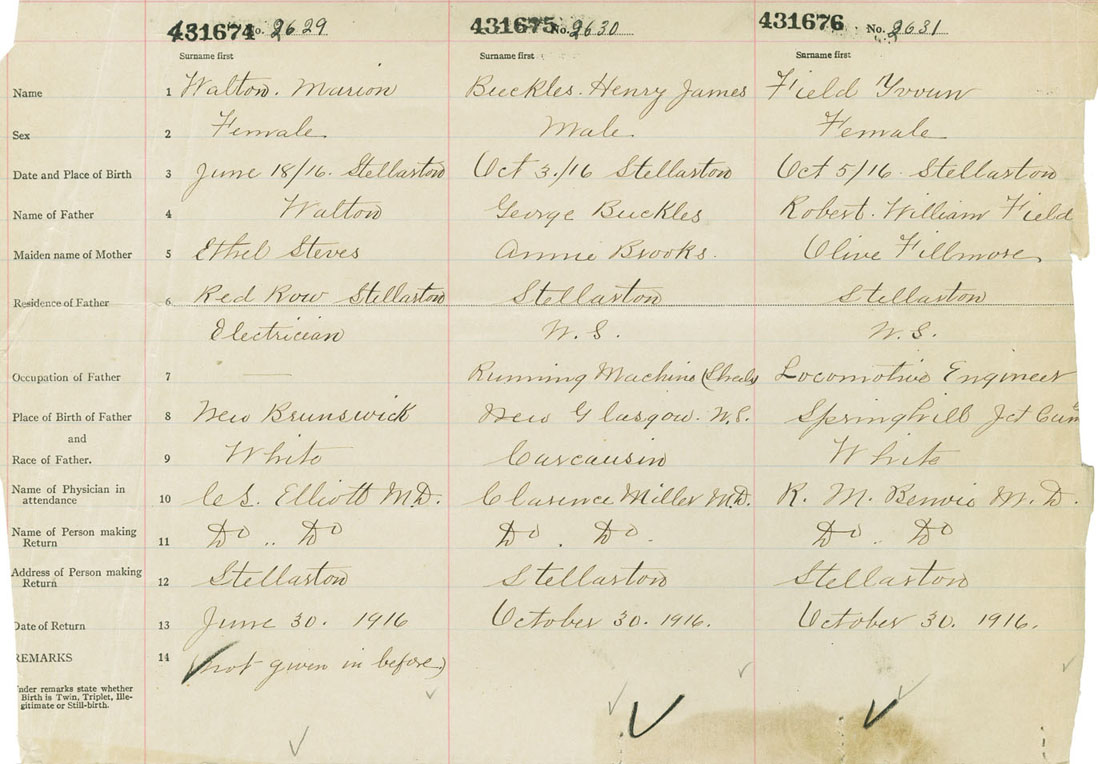 431674 No. 2629 431675 No. 2630 431676 No. 2631
Surname first Surname first Surname first
Name 1 Walton. Marion Buckles. Henry James Field Yvoun
Sex 2 Female Male Female
Date and Place of Birth 3 June 18/16. Stellarton Oct 3./16 Stellarton Oct 5/16 Stellarton
Name of Father 4 Walton George Buckles Robert. William Field
Maiden name of Mother 5 Ethel Steves Annie Brooks. Olive Fillmore
Residence of Father 6 Red Row Stellarton Stellarton Stellarton
Electrician N. S. N. S.
Occupation of Father 7 — Running Machine Locomotive Engineer
Place of Birth of Father 8 New Brunswick New Glasgow. N.S. Springhill Jct Cum
and
Race of Father. 9 White Carcausin White
Name of Physician in
attendance 10 C.S. Elliott M.D. Clarence Miller M.D. R. M. Benvie M. D.
Name of Person making
Return 11 Do .. Do Do . Do. Do .. Do
Address of Person making
Return 12 Stellarton Stellarton Stellarton
Date of Return 13 June 30. 1916 October 30. 1916. October 30. 1916.
REMARKS 14 (not given in before)
Under remarks state whether
Birth is Twin, Triplet, Ille-
gitimate or Still-birth.